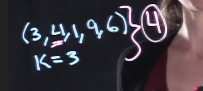 (3,4,1,9,6)} 4
K=3